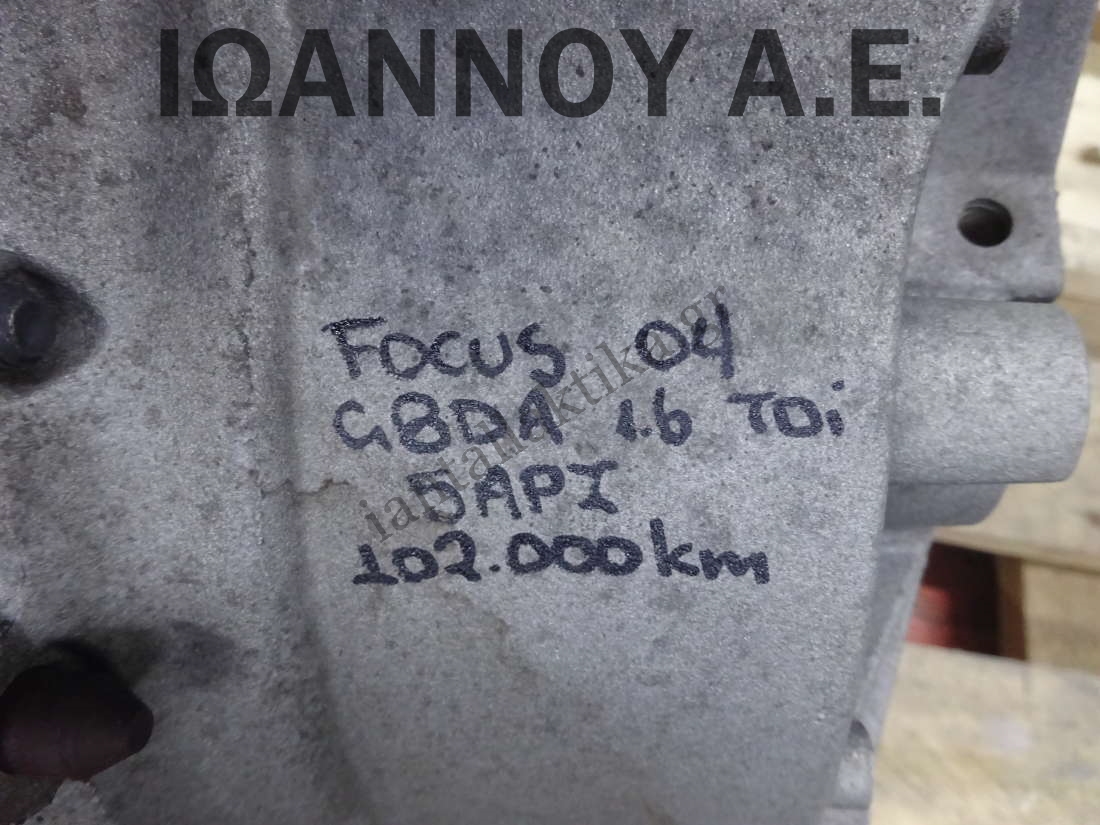 ΙΩΑΝΝΟΥ Α.Ε.
FOCUS 04
G8DA 1.6 TDi
5ΑΡΙ
102.000km